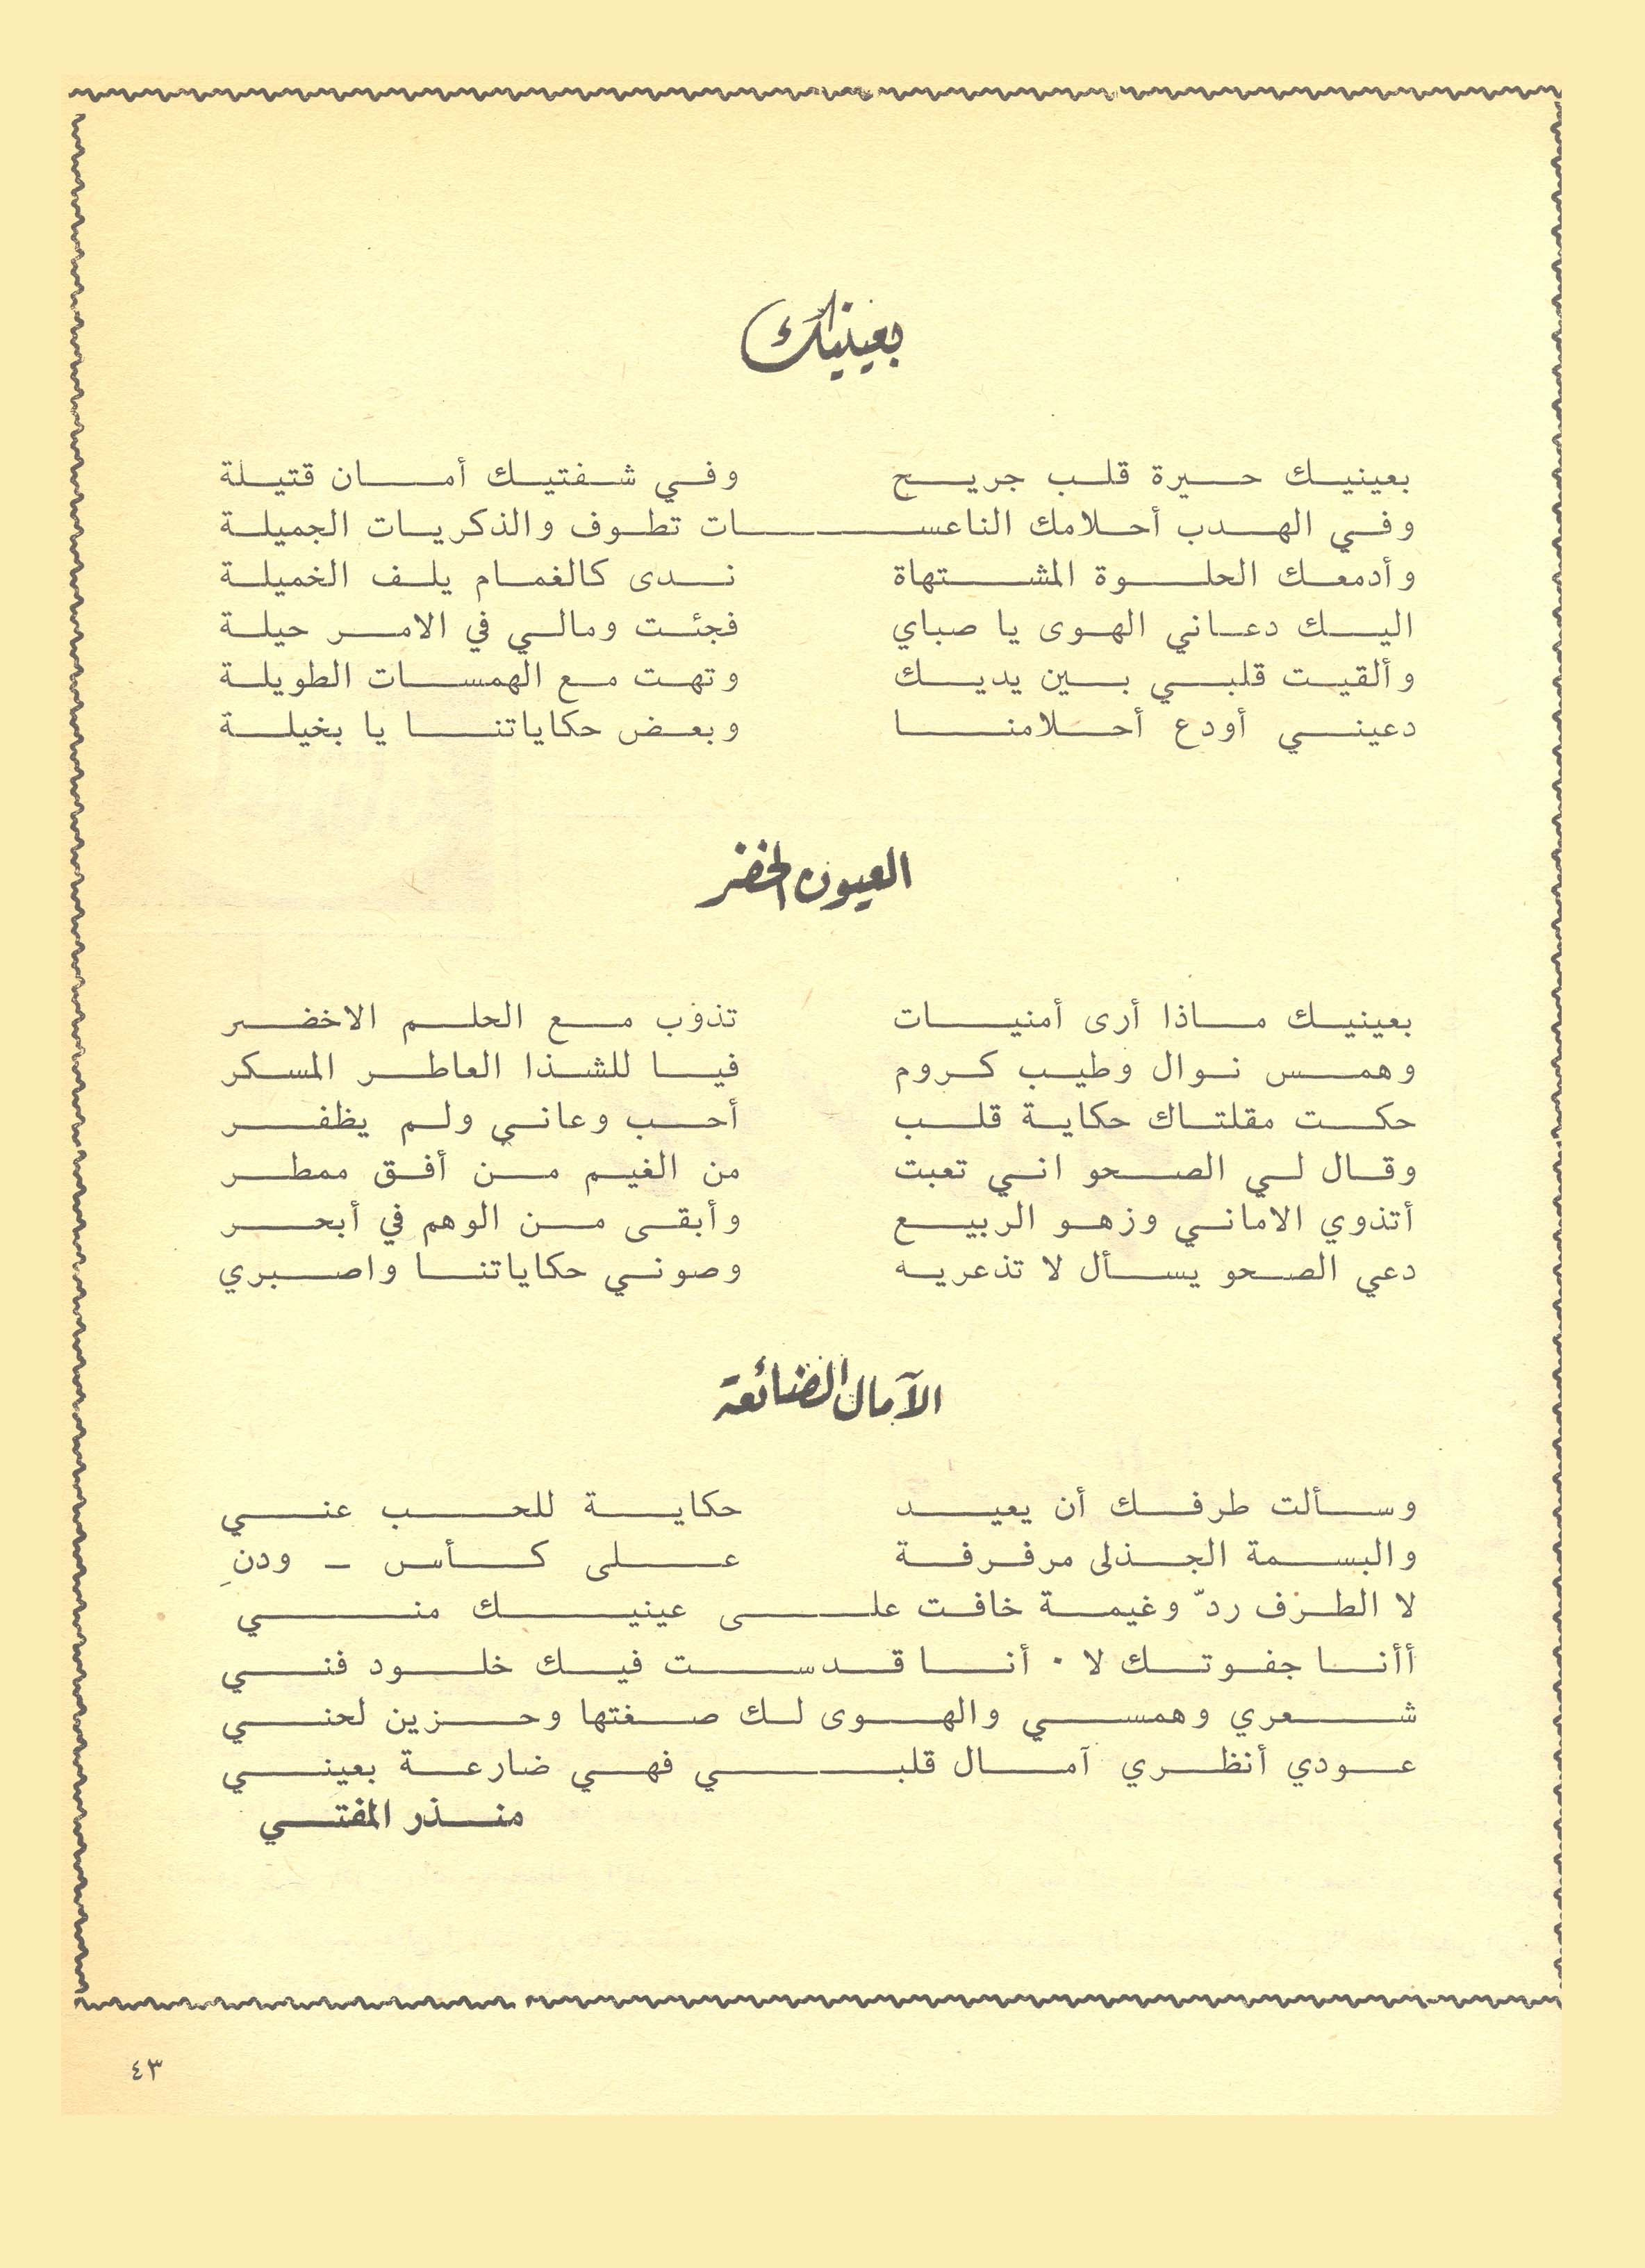 بعينيك
بعينيك حيرة قلب جريح وفي شفتيك أمان قتيلة
وفي الهدب أحلامك الناعسات تطوف والذكريات الجميلة
وأدمعك الحلوة المشتهاة ندى كالغمام يلف الخميلة
اليك دعاني الهوى يا صباي فجئت ومالي في الامر حيلة
وألقيت قلبي بين يديك وتهت مع الهمسات الطويلة
دعيني أودع أحلامنا وبعض حكاياتنا يا بخيلة
العيون الخضر
بعينيك ماذا أرى أمنيات تذوب مع الحلم الاخضر
وهمس نوال وطيب كروم فيا للشذا العاطر المسكر
حكت مقلتاك حكاية قلب أحب وعاني ولم يظفر
وقال لي الصحو اني تعبت من الغيم من أفق ممطر
أتذوي الاماني وزهو الربيع وأبقى من الوهم في أبحر
دعي الصحو يسأل لا تذعريه وصوني حكاياتنا واصبري
الآمال الضائعة
وسألت طرفك أن يعيد حكاية للحب عني
والبسمة الجذلى مرفرفة على كأس – ودنِ
لا الطرف ردّ وغيمة خافت على عينيك مني
أأنا جفوتك لا . أنا قدست فيك خلود فني
شعري وهمسي والهوى لك صغتها وحزين لحني
عودي أنظري آمال قلبي فهي ضارعة بعيني
منذر المفتي
٤٣